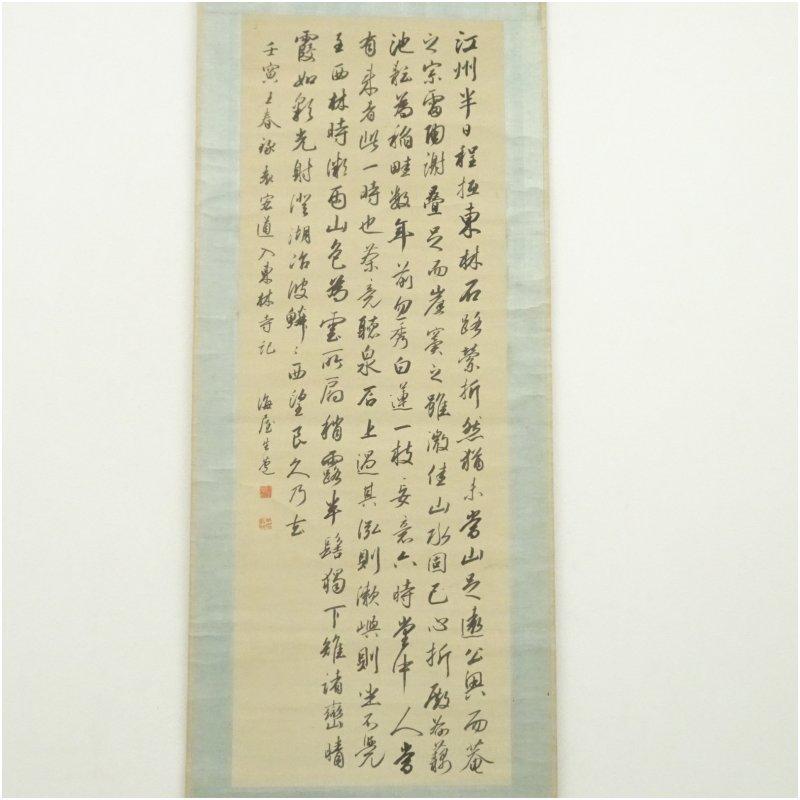 江州半日程抵東林石路縈折然猶未嘗山足遠公輿而菴
之宗雷陶謝疊足而崖竇之雖微佳山水固已心折殿前藕
池耘為稲畦数年前忽秀白蓮一枝妄意六時堂中人當
有来者此一時也茶竟聴泉石上遇其泓則漱嶼則坐不覺
至西林時微雨山色為雲所扃稍露半髻獨下雉諸巒晴
霞如彩光射澄湖冶波鱗〻西望良久乃去
壬寅上春録袁宏道入東林寺記 海屋生